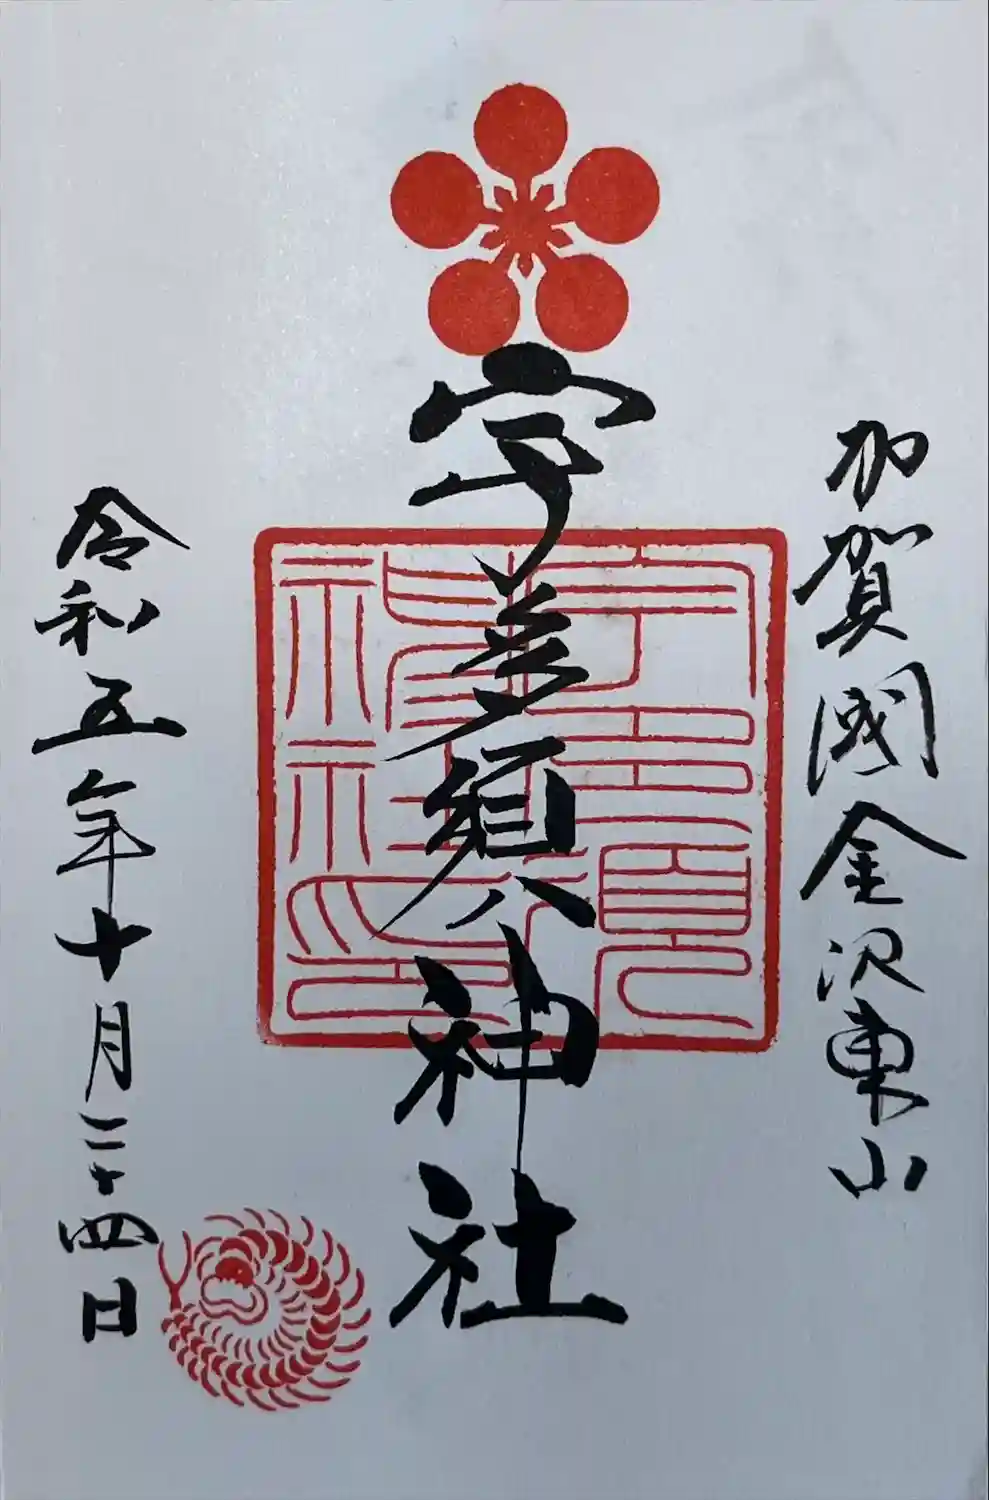 加賀國金沢東山
宇多須神社
宇多須神社印
令和五年十月二十四日